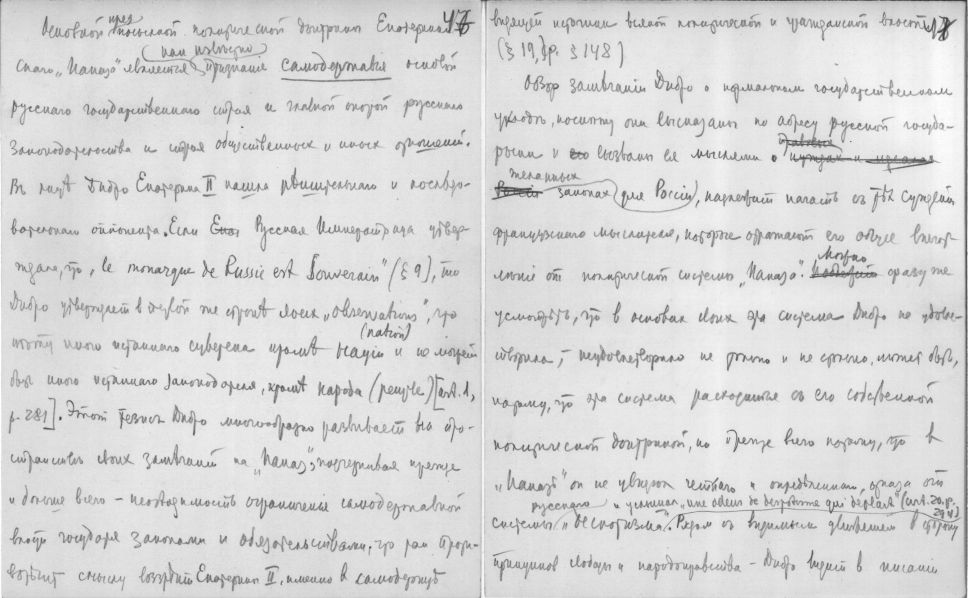 47
Основной предпосылкой политической доктрины Екатерининскаго
„Наказа" является (как известно) признание самодержавия основой
русскаго государственнаго строя и главной опорой русскаго
законодательства и строя общественных и иных отношений.
Въ лице Дидро Екатерина II нашла решительнаго и последо-
вательнаго оппонента. Если Русская Императрица утвер-
ждала, что „le monarque de Russie est Souverain" (§ 9), то
Дидро утверждает в первой же строке своих „Observations", что
нет иного истиннаго суверена кроме нации (nation) и не может
быть иного истиннаго законодателя, кроме народа (peuple) [art. 1,
p. 281]. Этот тезис Дидро многообразно развивает на про-
странстве своих замечаний на „Наказ", подчеркивая прежде
и больше всего – необходимость ограничения самодержавной
власти государя законами и обязательствами, что как проти-
воречит смыслу воззрений Екатерины II, именно в самодержце
видящей источник всякой политической и гражданской власти
(§ 19, ср. § 148)
Обзор замечаний Дидро о нормальном государственном
укладе, поскольку они высказаны по адресу русской госуда-
рыни и вызваны ея мыслями о
желанных законах (для России), надлежит начать съ тех суждений
французскаго мыслителя, которые отражают его общее впечат-
ление от политической системы „Наказа". Можно сразу же
усмотреть, что в основах своих эта система Дидро не удовле-
творила, – неудовлетворила не только и не столько, может быть,
потому, что эта система расходится съ его собственной
политической доктриной, но прежде всего потому, что в
„Наказе" он не увидел четкаго и определеннаго отказа от
системы русскаго „деспотизма" и услышал „une odeur de despotisme qui déplaît" (art. 20, p. 294)
Рядом съ видимым движением в сторону
принципов свободы и народоправства – Дидро видит в писании